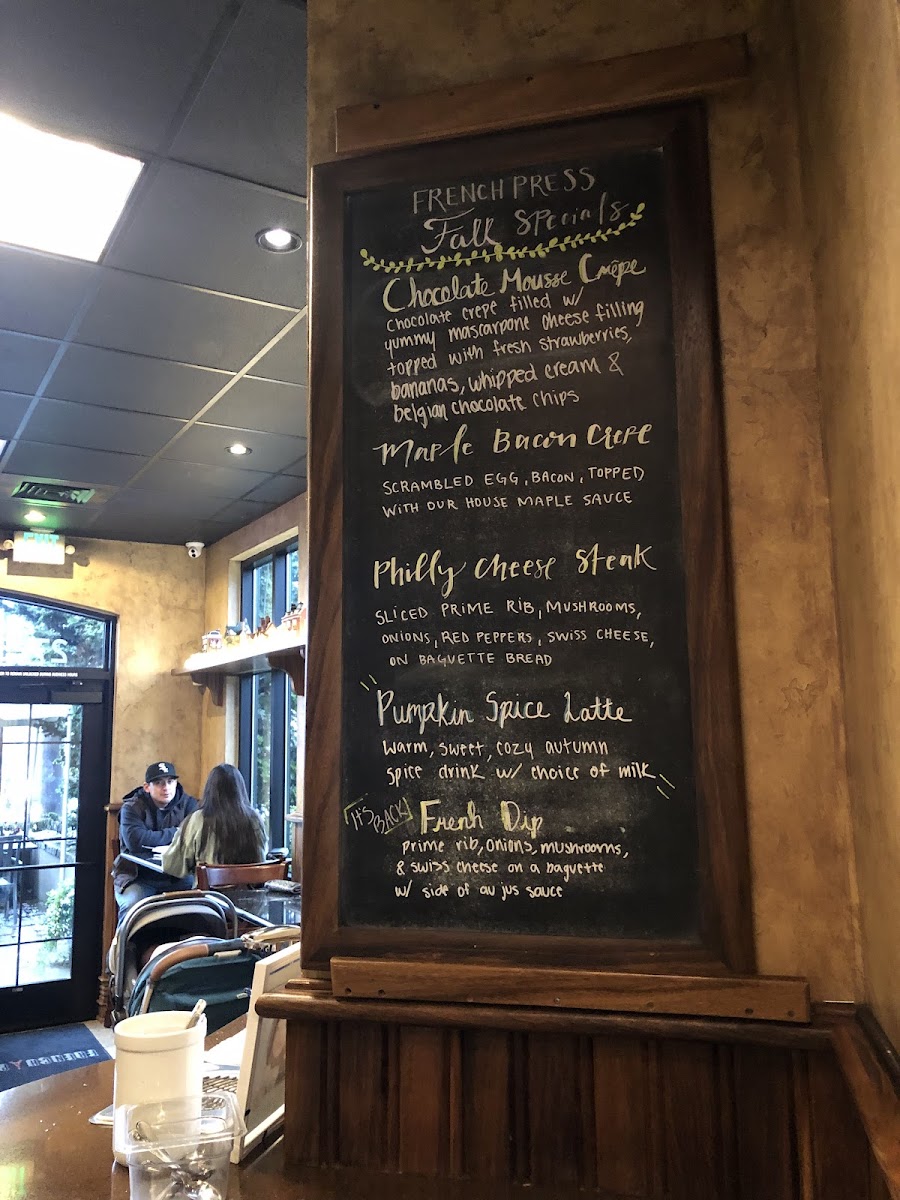 FRENCH PRESS
Fall Specials
Chocolate Mousse Crêpe
chocolate crepe filled w/
yummy mascarpone cheese filling
topped with fresh strawberries,
bananas, whipped cream &
belgian chocolate chips
Maple Bacon Crepe
SCRAMBLED EGG, BACON, TOPPED
WITH OUR HOUSE MAPLE SAUCE
Philly Cheese Steak
SLICED PRIME RIB, MUSHROOMS,
ONIONS, RED PEPPERS, SWISS CHEESE,
ON BAGUETTE BREAD
Pumpkin Spice Latte
warm, sweet, cozy autumn
spice drink w/ choice of milk
IT'S BACK!
Frenh Dip
prime rib, onions, mushrooms,
& swiss cheese on a baguette
w/ side of au jus sauce
EXIT